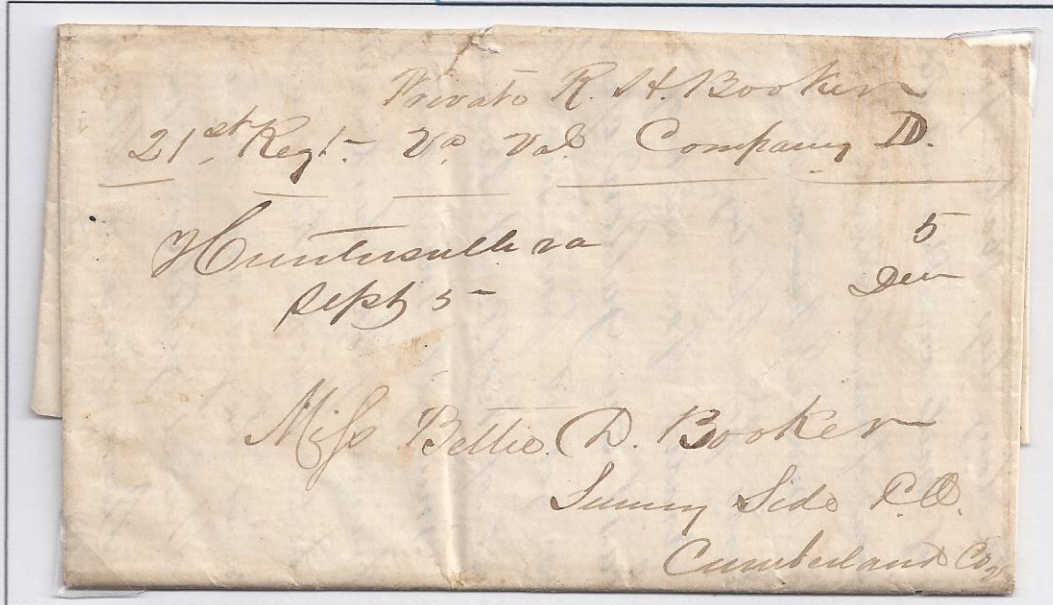 Private R. H. Booker
21st Regt. Va Vol Company D.
Huntersville va
5
sept 5
Due
Miss Bettie D. Booker
Sunny Side P.O.
Cumberland Co